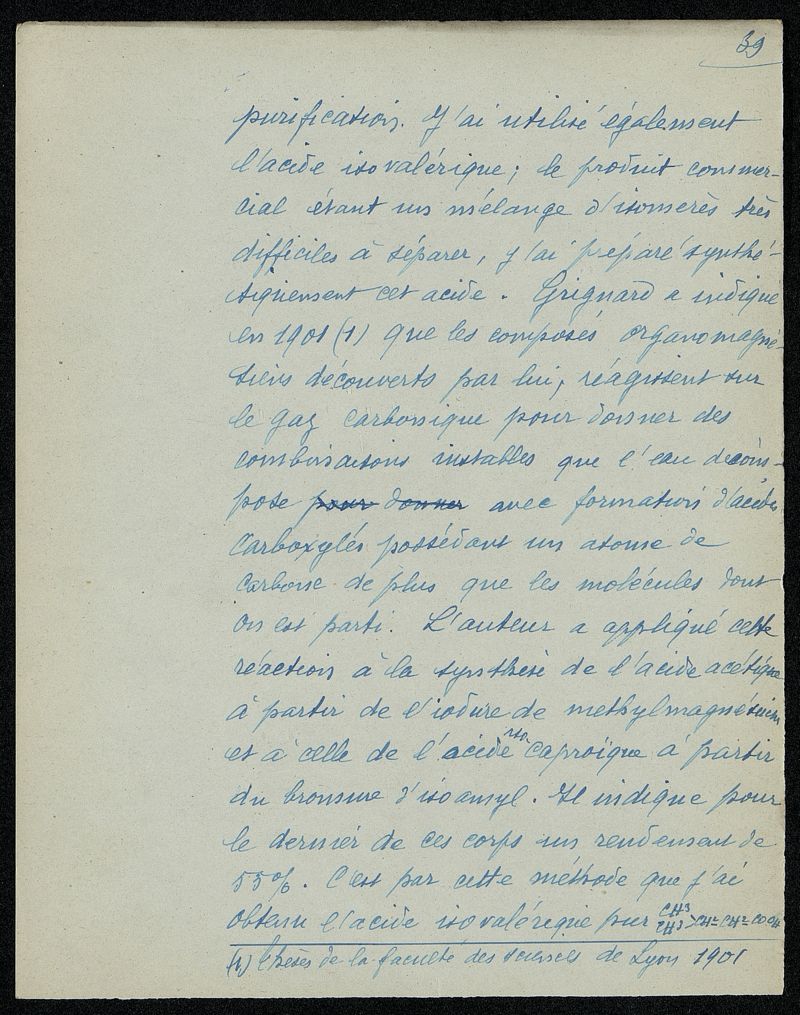 39
purification. J'ai utilisé également
l'acide isovalérique; le produit commer-
cial étant un mélange d'isomerès très
difficiles à séparer, j'ai préparé synthé-
tiquement cet acide. Grignard a indiqué
en 1901 (1) que les composés organomagné-
siens découverts par lui, réagissent sur
le gaz carbonique pour donner des
combinaisons instables que l'eau décom-
pose pour donner avec formation d'acides
carboxylés possédant un atome de
carbone de plus que les molécules dont
on est parti. L'auteur a appliqué cette
réaction à la synthèse de l'acide acétique
à partir de l'iodure de methylmagnésium
et à celle de l'acide iso caproïque à partir
du bromure d'isoamyl. Il indique pour
le dernier de ces corps un rendement de
55%. C'est par cette méthode que j'ai
obtenu l'acide isovalérique pur CH3 CH3 >CH-CH2-COOH
(1) Thèses de la faculté des sciences de Lyon 1901